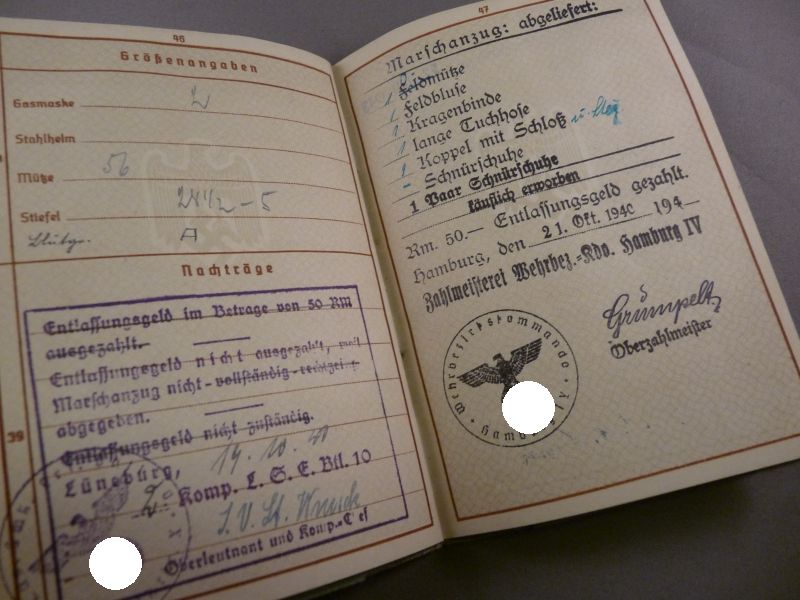 46
Größenangaben
Gasmaske 2
Stahlheim
Mütze 56
Stiefel 28½ - 5
Blutgr. A
Nachträge
Entlassungsgeld im Betrage von 50 RM
ausgezahlt.
Entlassungsgeld nicht ausgezahlt, weil
Marschanzug nicht - vollständig - rechtzeitig
abgegeben.
Entlassungsgeld nicht zuständig.
39
Lüneburg, 19.10.40
2. Komp. L.S.E.Btl. 10
I.V. Lt.
Oberleutnant und Komp.-Chef
47
Marschanzug: abgeliefert:
1 Feldmütze
1 Feldbluse
1 Kragenbinde
1 lange Tuchhose
1 Koppel mit Schloß u.
- Schnürschuhe
1 Paar Schnürschuhe
käuflich erworben
Rm. 50.— Entlassungsgeld gezahlt.
Hamburg, den 21. Okt. 1940 194
Zahlmeisterei Wehrbez.-Kdo. Hamburg IV
Grumpelt
Oberzahlmeister
Wehrbezirkskommando
Hamburg